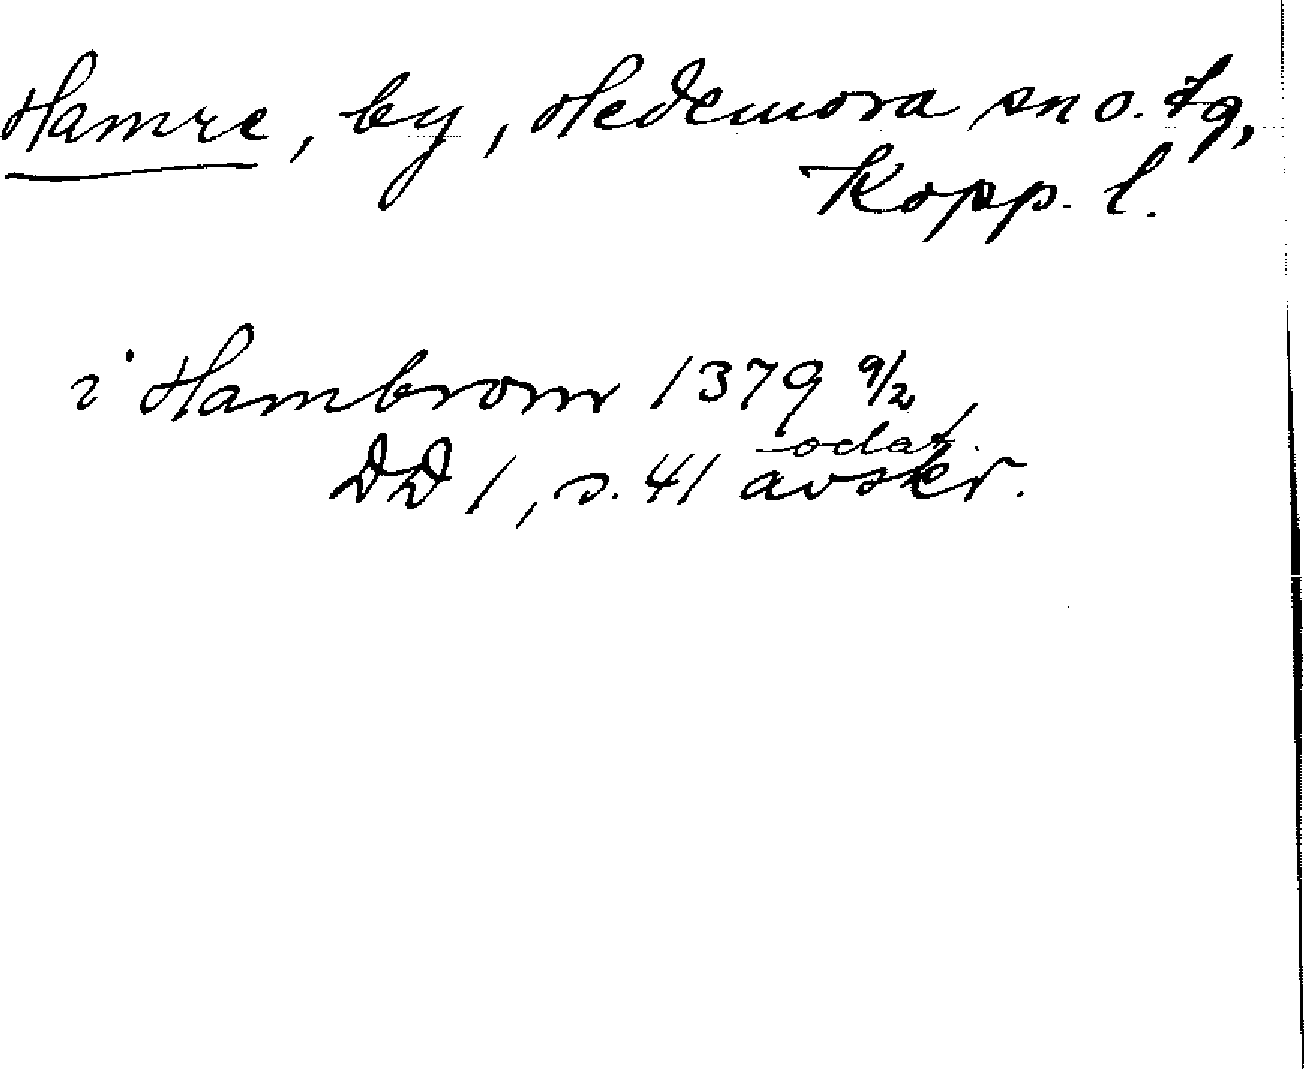 Hamre, by, Hedemora sn o. tg,
Kopp. l.
i Hambrom 1379 9/2
odat.
DD 1, s. 41 avskr.